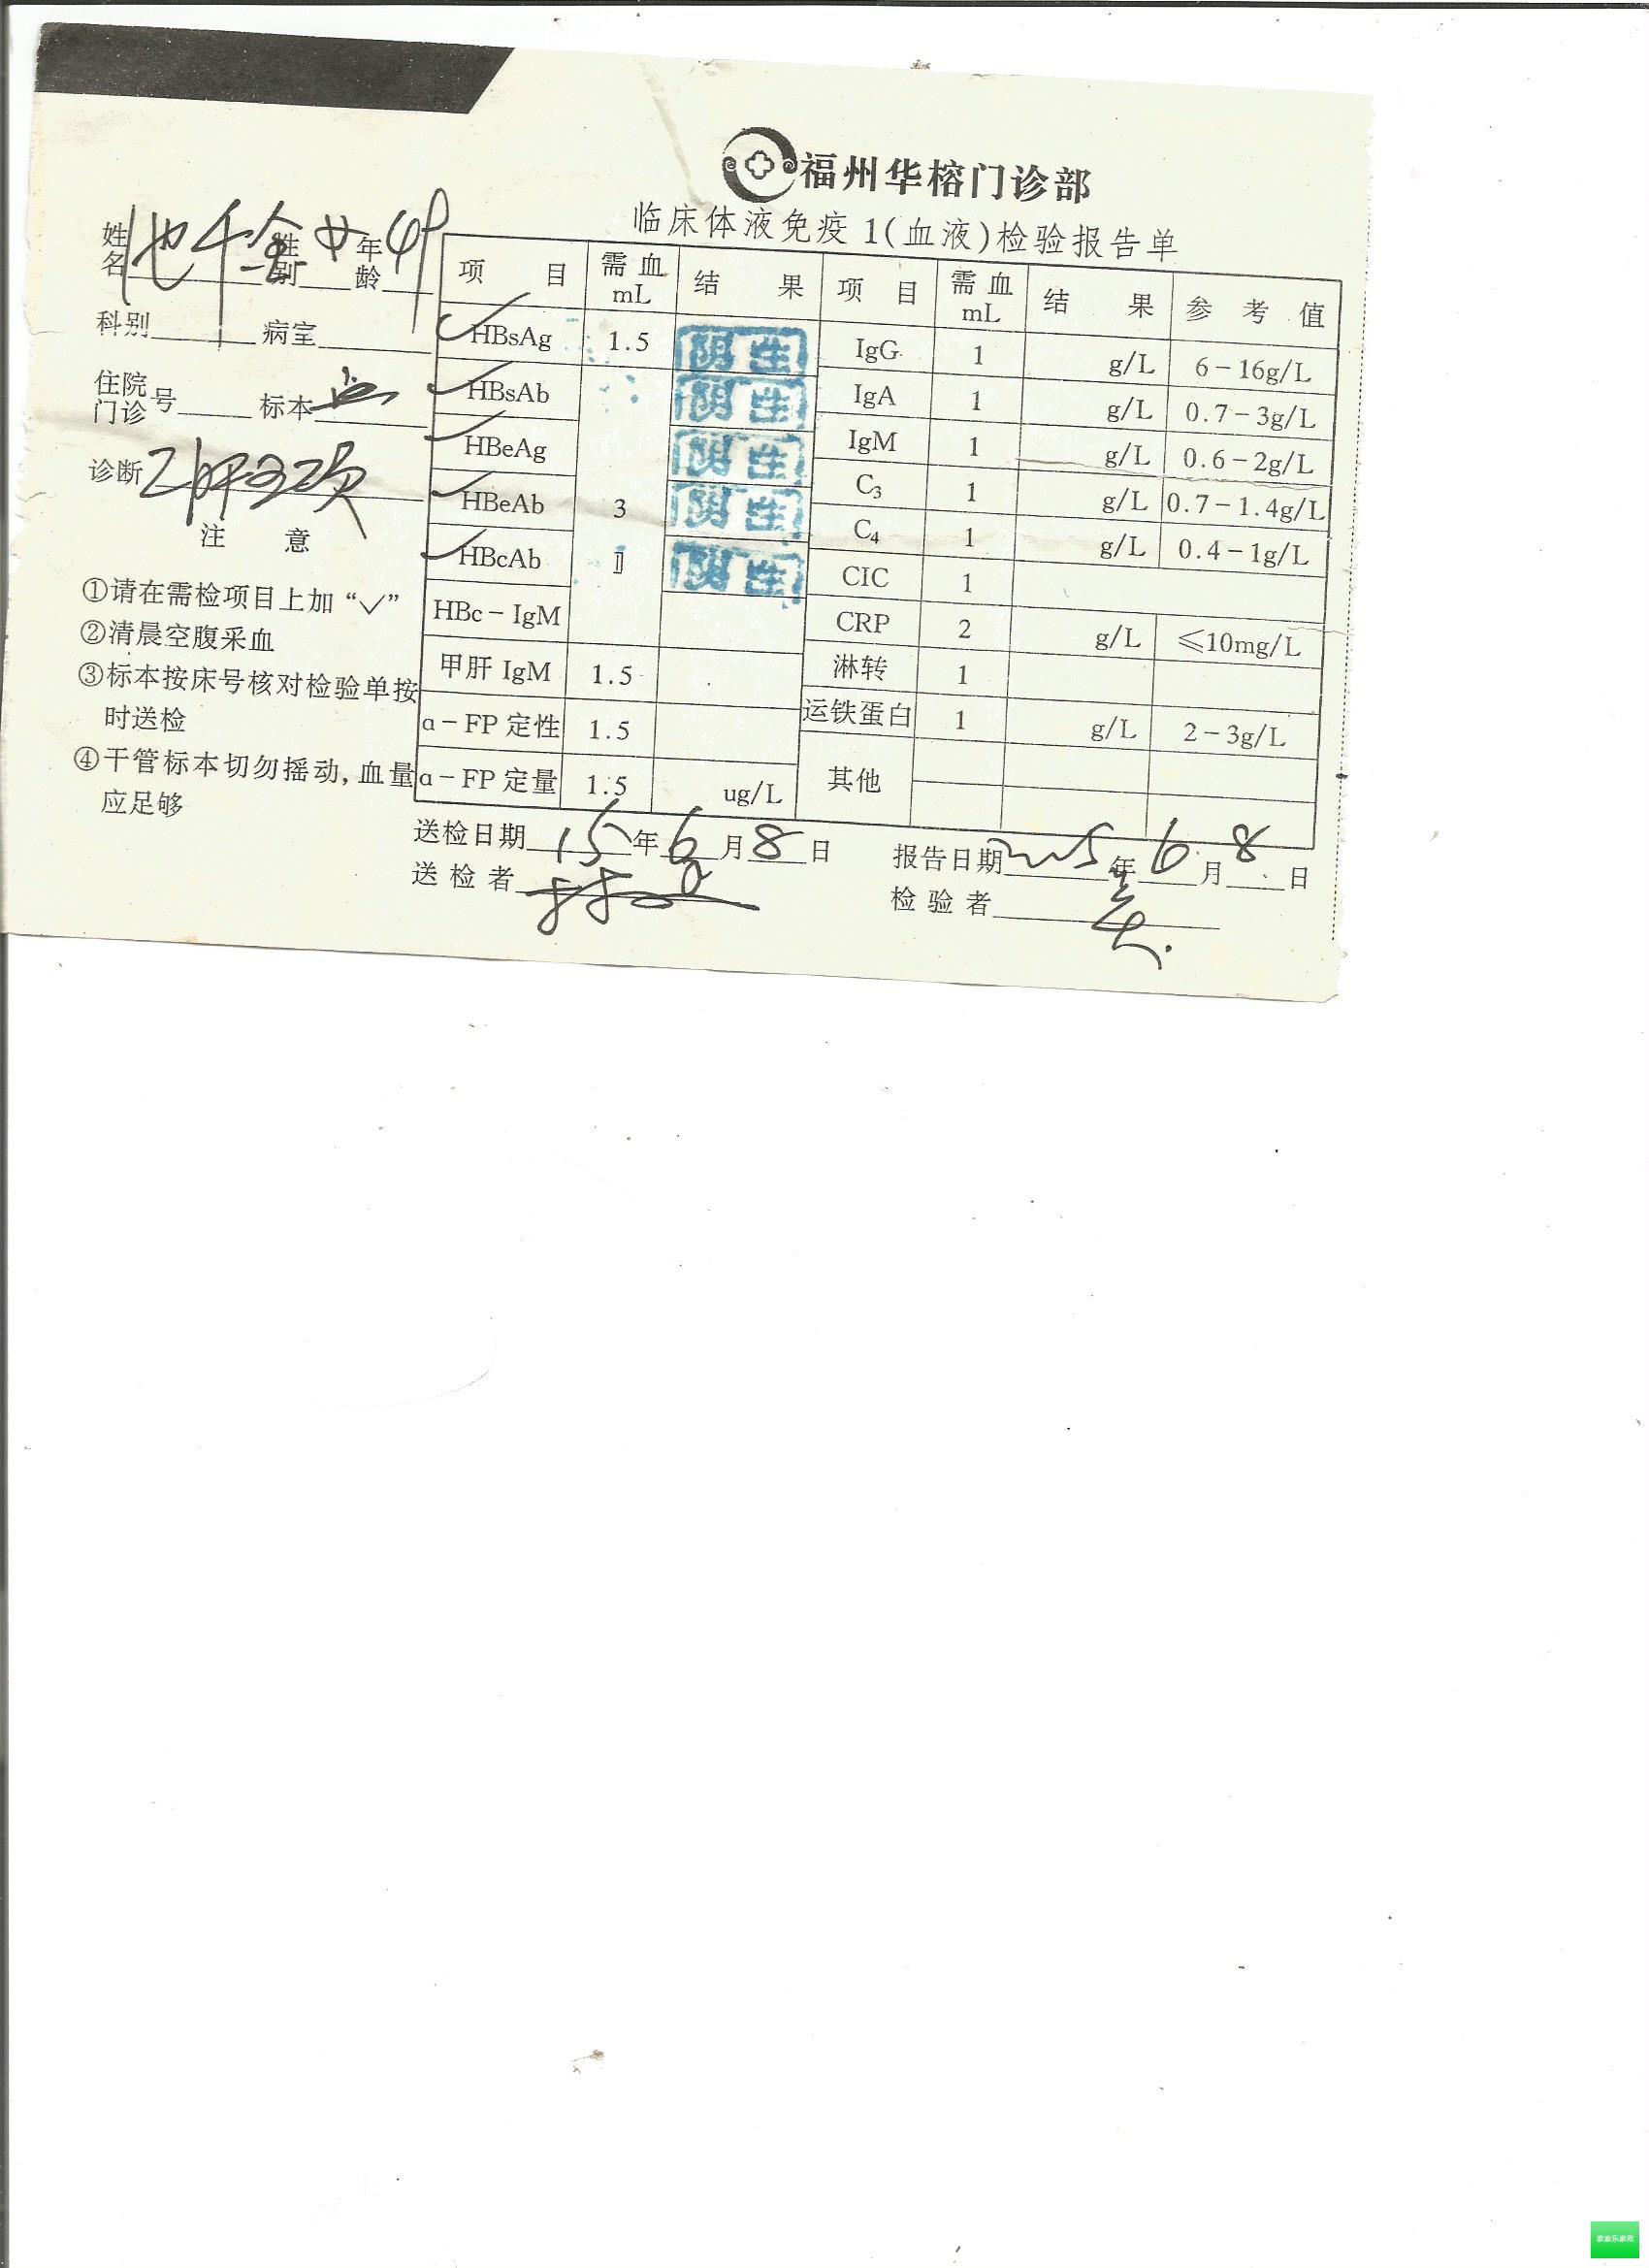 福州华榕门诊部
临床体液免疫1(血液)检验报告单
姓名 池千金 性别 女 年龄 49
科别 病室
住院门诊号 标本 血
诊断 乙肝两对
注 意
①请在需检项目上加“✓”
②清晨空腹采血
③标本按床号核对检验单按
时送检
④干管标本切勿摇动,血量
应足够
项 目 需血 mL 结 果 项 目 需血 mL 结 果 参 考 值
✓ HBsAg 1.5 阴性 IgG 1 g/L 6-16g/L
✓ HBsAb 阴性 IgA 1 g/L 0.7-3g/L
✓ HBeAg 阴性 IgM 1 g/L 0.6-2g/L
✓ HBeAb 3 阴性 C₃ 1 g/L 0.7-1.4g/L
✓ HBcAb 阴性 C₄ 1 g/L 0.4-1g/L
HBc-IgM CIC 1
甲肝 IgM 1.5 CRP 2 g/L ≤10mg/L
α-FP 定性 1.5 淋转 1
α-FP 定量 1.5 ug/L 运铁蛋白 1 g/L 2-3g/L
其他
送检日期 15 年 6 月 8 日 报告日期 2015 年 6 月 8 日
送 检 者 检 验 者
家家乐家政